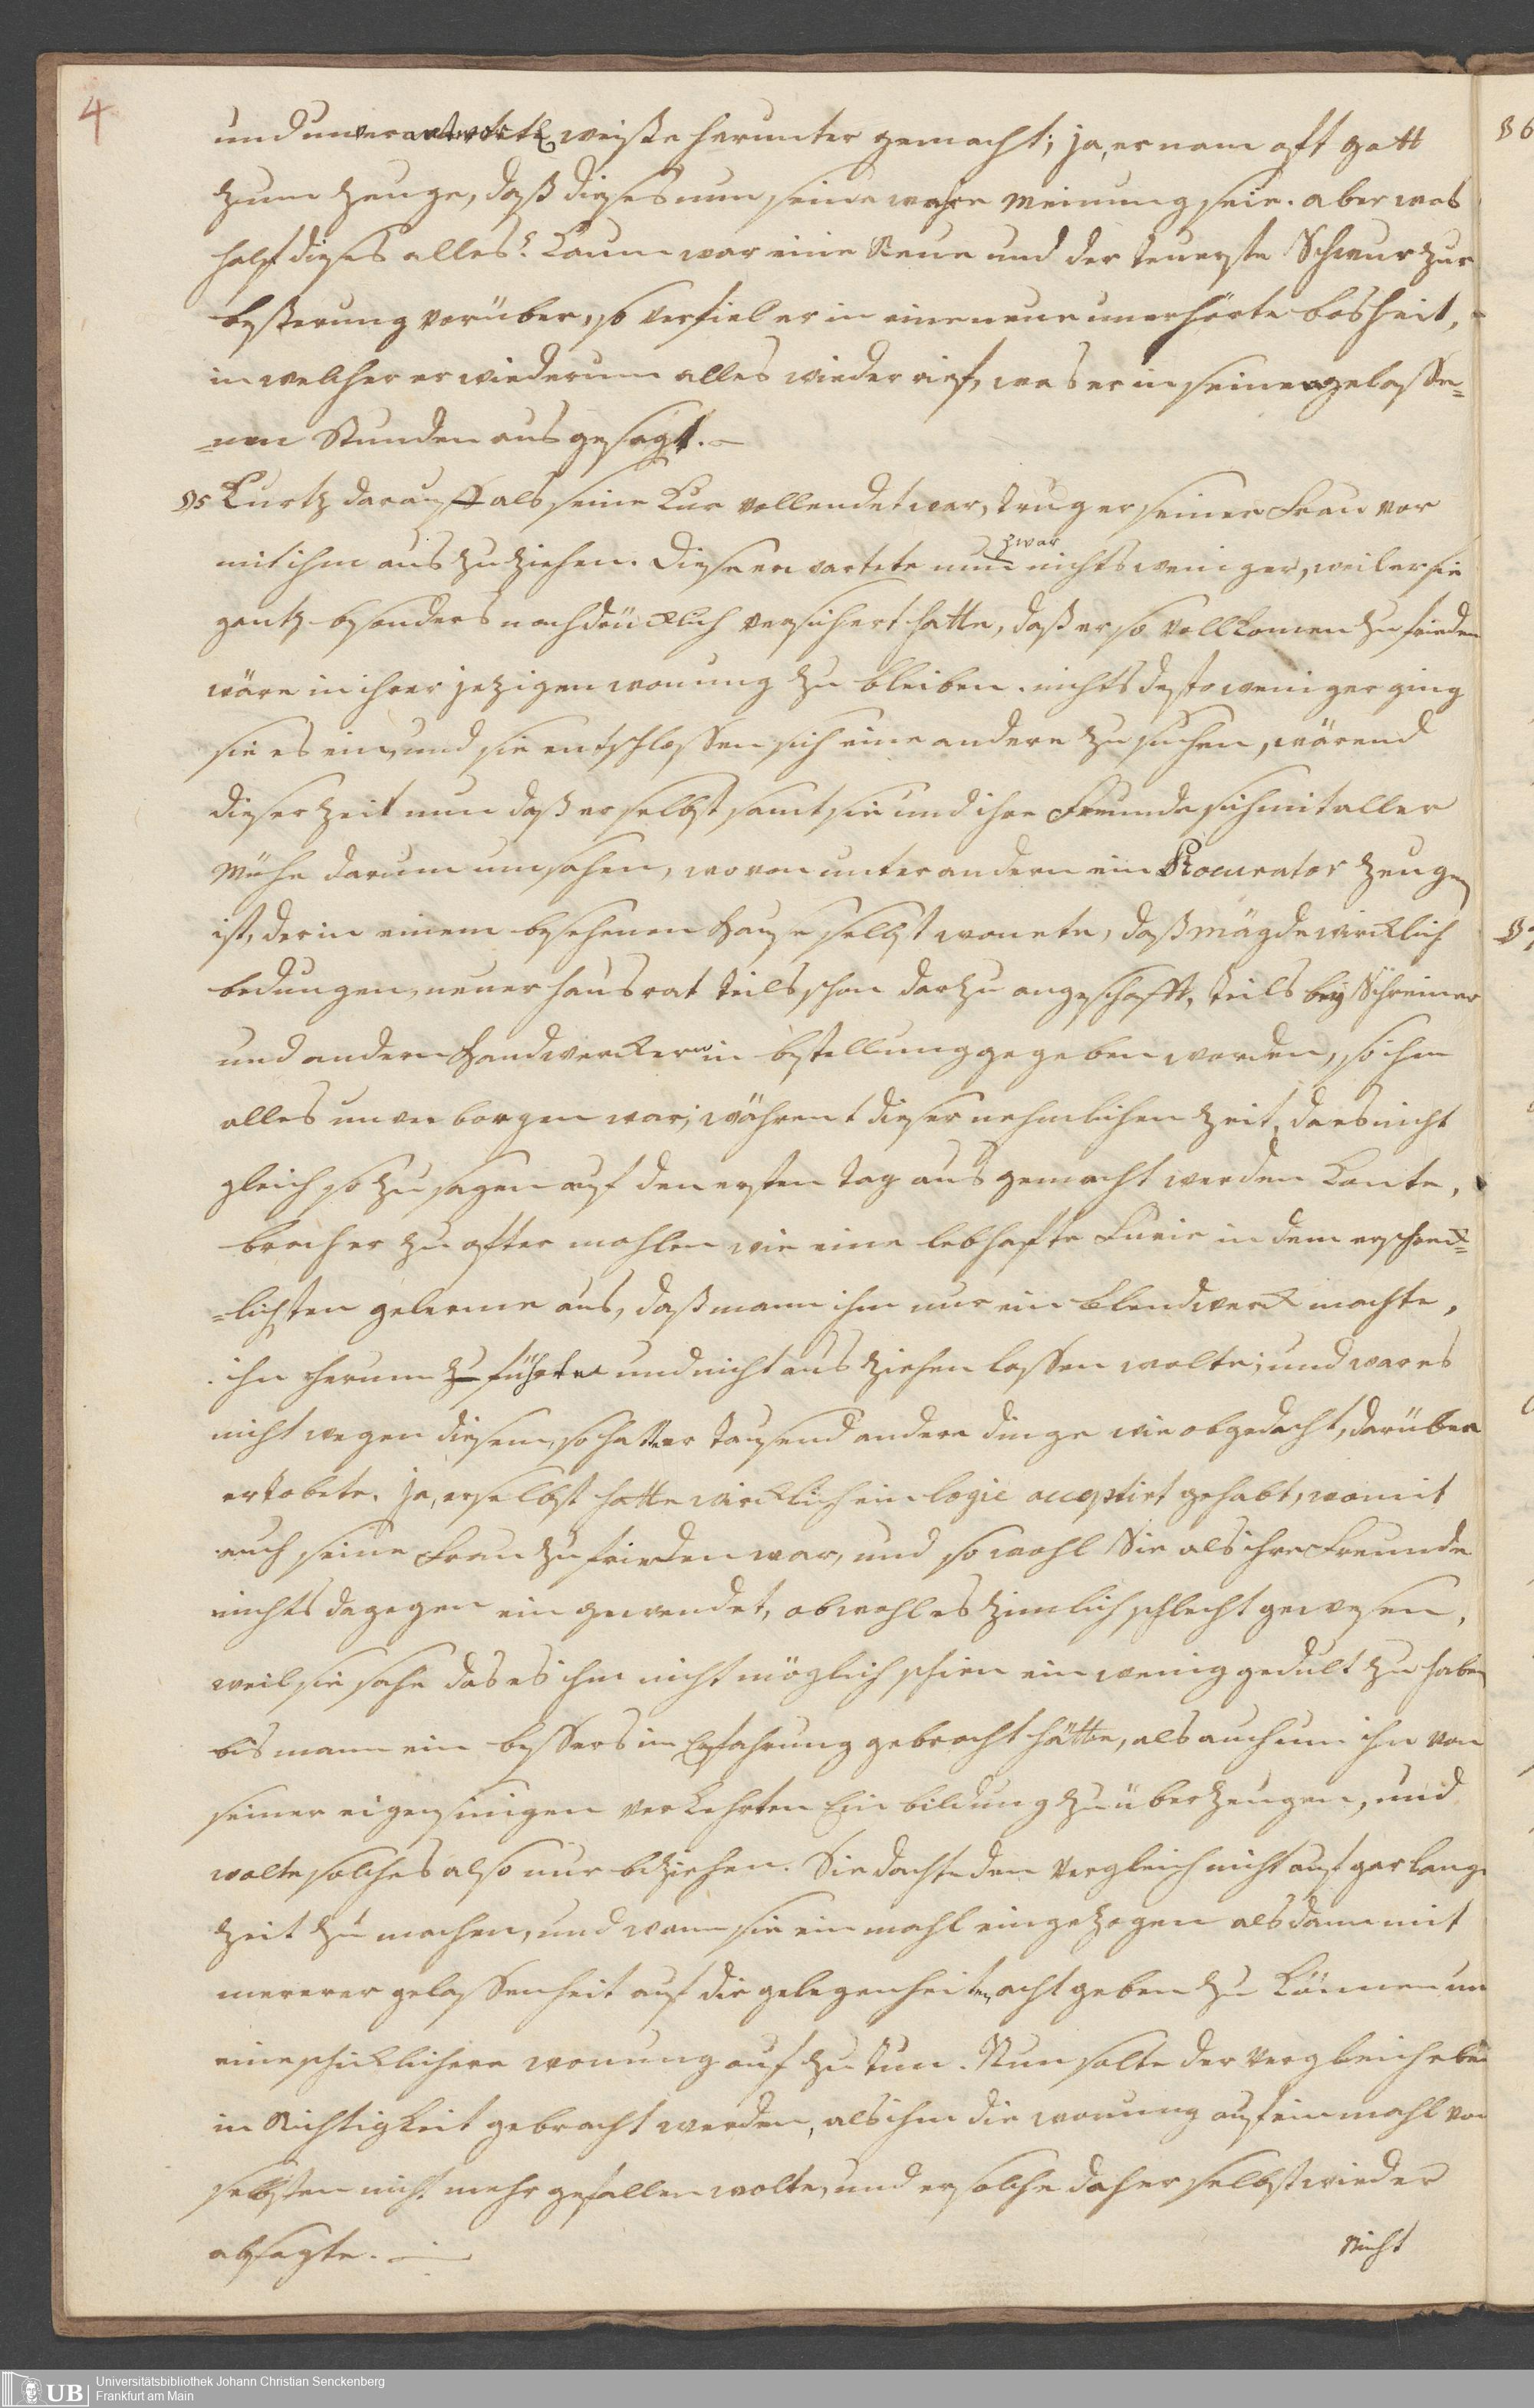 4
und unverantwortl. weiße herunter gemacht; ja, er nam oft gott
zum zeuge, daß dieses nun seine wahre meinung seie. aber was
half dieses alles? kaum war eine Reue und der teuerste Schwur zur
besserung vorüber, so verfiel er in eine neue unerhörte bosheit,
in welcher er wiederum alles wieder rief, was er in seinen gelasse=
=nen Stunden ausgesagt. –
§5 Kurtz darauf als seine Cur vollendet war, trug er seiner Frau vor
mit ihm aus zu ziehen. Diese erwartete nun zwar nichts weniger, weil er sie
gantz besonders nachdrücklich versichert hatte, daß er so vollkomen zu frieden
wäre in ihrer jezigen wonung zu bleiben. nichts desto weniger ging
sie es ein, und sie entschlossen sich eine andere zu suchen, wärend
dieser zeit nun daß er selbst samt sie und ihre Freunde sich mit aller
mühe darum umsahen, wovon unter andern ein Procurator zeuge
ist, der in einem besehenen hause selbst wonete, daß mägde wircklich
bedungen, neuer hausrat teils schon darzu angeschafft, teils bey Schreiner
und andern handwerckern in bestellung gegeben worden, so ihm
alles unverborgen war; während dieser nehmlichen zeit, da es nicht
gleich so zu sagen auf den ersten tag aus gemacht werden konte,
brach er zu öfter mahlen wie eine lebhafte Furie in dem erschreck=
=lichsten gelerme aus, daß mann ihm nur ein blendwerck machte,
ihn herum führte und nicht aus ziehen lassen wolte; und war es
nicht wegen diesem, so hatte er tausend andere dinge wie obgedacht, darüber
er tobete. ja, er selbst hatte wircklich ein logie acceptirt gehabt, womit
auch seine Frau zu frieden war, und so wohl Sie als ihre Freunde
nichts dagegen ein gewendet, obwohl es zimlich schlecht gewesen,
weil sie sahe das es ihm nicht möglich schien ein wenig gedult zu haben
bis mann ein bessers in Erfahrung gebracht hätte, als auch um ihn von
seiner eigensinigen verkehrten Ein bildung zu überzeugen, und
wolte solches also nur beziehen. Sie dachte den Vergleich nicht auf gar lange
zeit zu machen, und wann sie ein mahl eingezogen alsdann mit
mererer gelassenheit auf die gelegenheiten acht geben zu können um
eine schicklichere wonung auf zu tun. Nun solte der Vergleich eben
in Richtigkeit gebracht werden, als ihm die wonung auf ein mahl von
selbsten nicht mehr gefallen wolte, und er solche daher selbst wieder
absagte. –
Nicht
§6
Universitätsbibliothek Johann Christian Senckenberg
Frankfurt am Main
UB